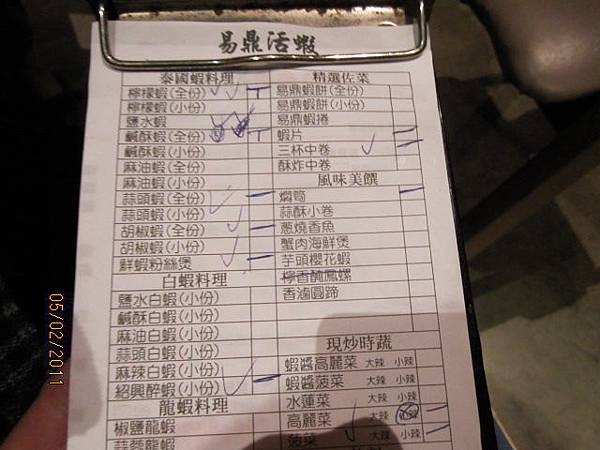 易鼎活蝦
泰國蝦料理
檸檬蝦(全份)
檸檬蝦(小份)
鹽水蝦
鹹酥蝦(全份)
鹹酥蝦(小份)
麻油蝦(全份)
麻油蝦(小份)
蒜頭蝦(全份)
蒜頭蝦(小份)
胡椒蝦(全份)
胡椒蝦(小份)
鮮蝦粉絲煲
白蝦料理
鹽水白蝦(小份)
鹹酥白蝦(小份)
麻油白蝦(小份)
蒜頭白蝦(小份)
麻辣白蝦(小份)
紹興醉蝦(小份)
龍蝦料理
椒鹽龍蝦
蒜蓉龍蝦
精選佐菜
易鼎蝦餅(全份)
易鼎蝦餅(小份)
易鼎蝦捲
蝦片
三杯中卷
酥炸中卷
風味美饌
燜筍
蒜酥小卷
蔥燒香魚
蟹肉海鮮煲
芋頭櫻花蝦
檸香醃鳳螺
香滷圓蹄
現炒時蔬
蝦醬高麗菜 大辣 小辣
蝦醬菠菜 大辣 小辣
水蓮菜 大辣 小辣
高麗菜 大辣 小辣
菠菜 大辣 小辣
05/02/2011